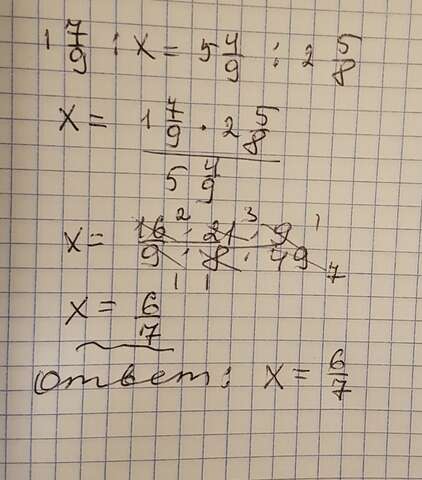 1 7/9 : x = 5 4/9 : 2 5/8
x = (1 7/9 · 2 5/8) / (5 4/9)
x = (16 2 · 21 3 · 9 1) / (9 1 · 8 1 · 49 7)
x = 6/7
ответ: x = 6/7